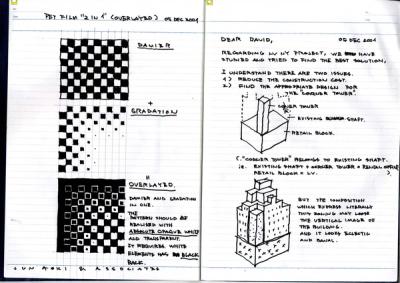 PET FILM "2 IN 1" (OVERLAYED) 05 DEC 2001
DAMIER
+
GRADATION
=
OVERLAYED.
DAMIER AND GRADATION
IN ONE.
THE
PATTERN SHOULD BE
REALISED WITH
ABSOLUTE OPAQUE WHITE
AND TRANSPARENT.
IT REQUIRES WHITE
ELEMENTS HAS BLACK
BACK.
JUN AOKI & ASSOCIATES
DEAR DAVID, 05 DEC 2001
REGARDING LV NY PROJECT, WE HAVE
STUDIED AND TRIED TO FIND THE BEST SOLUTION.
I UNDERSTAND THERE ARE TWO ISSUES.
1) REDUCE THE CONSTRUCTION COST.
2) FIND THE APPROPRIATE DESIGN FOR
THE "CORNER TOWER".
CORNER TOWER
EXISTING SHAFT.
RETAIL BLOCK.
("CORNER TOWER" BELONGS TO EXISTING SHAFT.
ie. EXISTING SHAFT + CORNER TOWER = RENTAL OFFICE
RETAIL BLOCK = LV. )
BUT THE COMPOSITION
WHICH EXPRESS LITERALLY
THIS ZONING MAY LOOSE
THE VERTICAL IMAGE OF
THE BUILDING.
AND IT LOOKS ECLECTIC
AND BANAL.